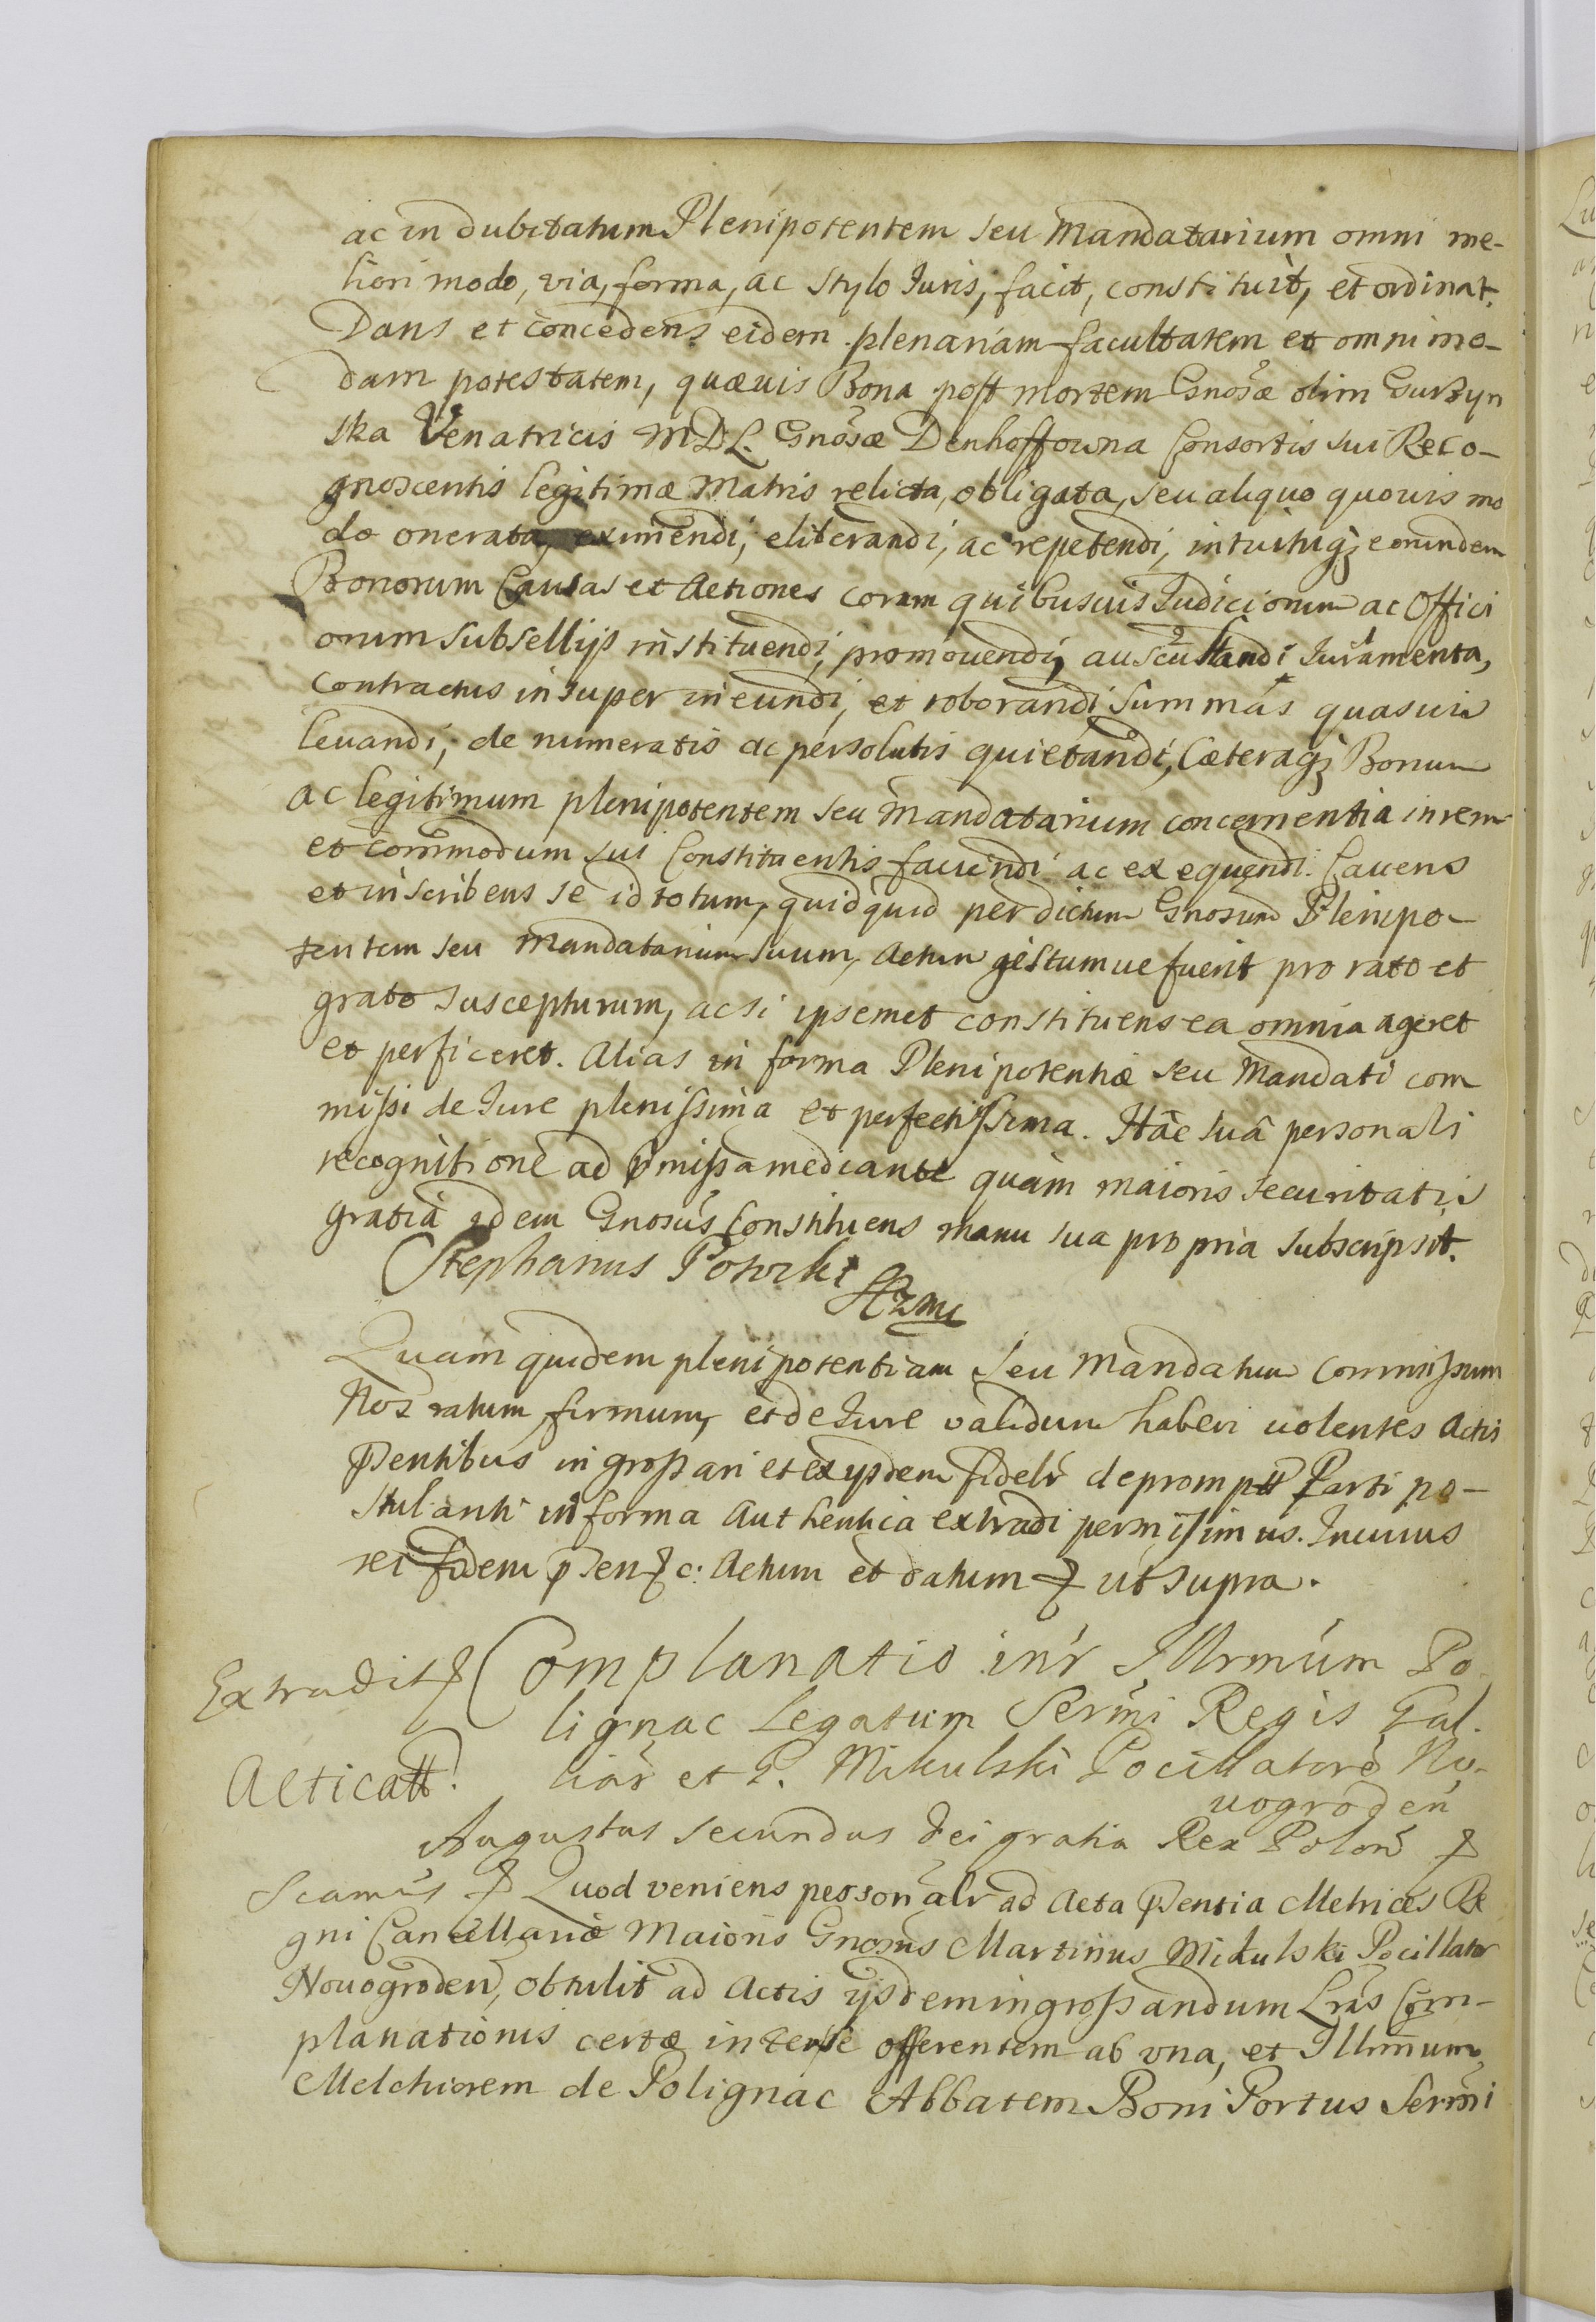 ac indubitatum Plenipotentem seu Mandatarium omni me-
liori modo, via, forma, ac stylo Iuris, facit, constituit, et ordinat.
Dans et concedens eidem plenariam facultatem et omnimo-
dam potestatem, quævis Bona post mortem Gnosæ olim Gurzyn
ska Venatricis M.D.L. Gnosæ Denhoffowna Consortis sui Reco-
gnoscentis legitimæ Matris relicta, obligata, seu aliquo quovis mo
do onerata, eximendi, eliberandi, ac repetendi, intuituq; eorundem
Bonorum Causas et Actiones coram quibusvis Iudiciorum ac Offici
orum subsellijs instituendi, promovendi, auscultandi Iuramenta,
Contractus insuper ineundi, et roborandi Summas quasvis
levandi, de numeratis ac persolutis quietandi, Cæteraq; Bonum
ac legitimum plenipotentem seu Mandatarium concernentia in rem
et commodum sui Constituentis faciendi ac exequendi. Cavens
et inscribens se id totum, quidquid per dictum Gnosum Plenipo-
tentem seu Mandatarium suum, Actum gestumve fuerit pro rato et
grato suscepturum, ac si ipsemet constituens ea omnia ageret
et perficeret. Alias in forma Plenipotentiæ seu Mandati com
missi de Iure plenissima et perfectissima. Hac suâ personali
recognitione ad pmissa mediante quàm maioris securitatis
gratiâ idem Gnosus Constituens manu sua propria subscripsit.
Stephanus Potocki
Quam quidem plenipotentiam seu Mandatum Commissum
Nos ratum, firmum, et de Iure validum haberi volentes Actis
pntibus ingrossari et ex ijsdem fidelr deprompt Parti po-
stulanti in forma Authentica extradi permisimus. In cuius
rei fidem psen &c: Actum et datum & ut supra.
Extradit & Complanatio intr Illrmum Po
lignac Legatum Sermi Regis Gal-
Acticatt. liar et G. Mikulski Pocillatorē No-
vogroden
Augustus Secundus Dei gratia Rex Polon &
Scamus & Quod veniens personalr ad Acta psentia Metrices Re
gni Cancellariæ Maioris Gnosus Martinus Mikulski Pocillator
Novogroden, obtulit ad Actis ijsdem ingrossandum Lras Com-
planationis certæ inter se offerentem ab una, et Illrmum
Melchiorem de Polignac Abbatem Boni Portus Sermi